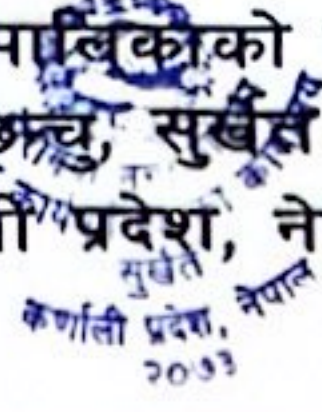 पालिकाको
छिन्चु, सुर्खेत
प्रदेश, ने
सुर्खेत
कर्णाली प्रदेश, नेपाल
२०७३